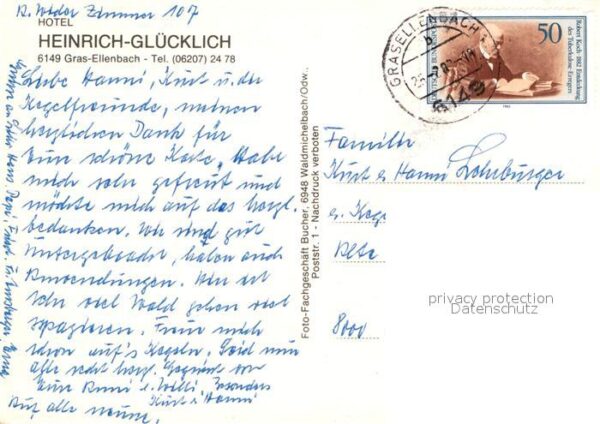 Zimmer 107
HOTEL
HEINRICH-GLÜCKLICH
6149 Gras-Ellenbach - Tel. (06207) 24 78
Liebe Hanni, Kurt u. die
Kegelfreunde, meinen
herzlichen Dank für
Eure schöne Karte. Habe
mich sehr gefreut und
möchte mich auf das herzl.
bedanken. Wir sind gut
untergebracht, haben auch
Anwendungen. Hier ist
viel Wald gehen viel
spazieren. Freue mich
schon auf's Kegeln. Seid nun
alle recht herzl. Gegrüsst von
Eure Anni u. Willi, Besonders
Kurt u. Hanni
Foto-Fachgeschäft Bucher, 6948 Waldmichelbach/Odw.,
Poststr. 1 - Nachdruck verboten
GRASELLENBACH
b
6149
50
Robert Koch · 1882 Entdeckung
des Tuberkulose-Erregers
Familie
Kurt u. Hanni
8000
privacy protection
Datenschutz